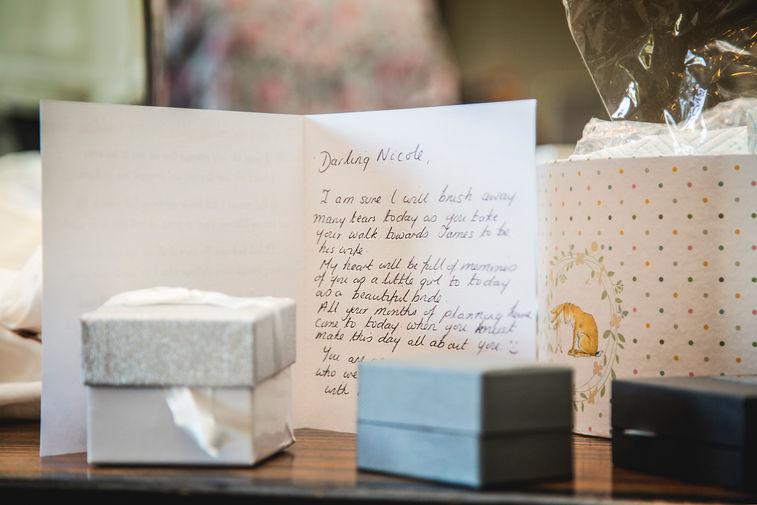 Darling Nicole,
I am sure I will brush away
many tears today as you take
your walk towards James to be
his wife.
My heart will be full of memories
of you as a little girl to today
as a beautiful bride.
All your months of planning have
come to today when you must
make this day all about you
You are
who we
with